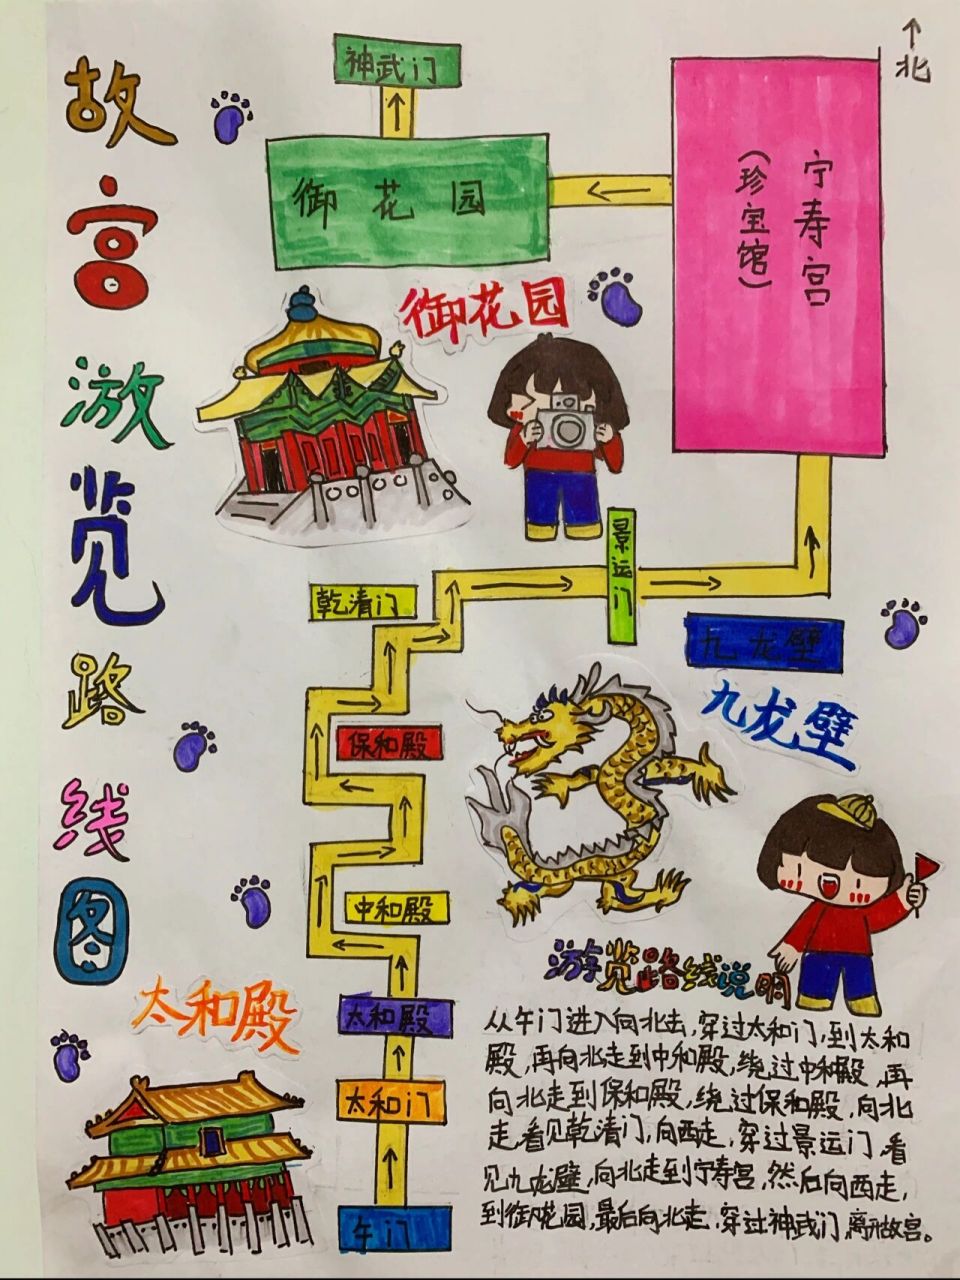 故宫游览路线图
北
神武门
御花园
宁寿宫
(珍宝馆)
御花园
景运门
乾清门
九龙壁
九龙壁
保和殿
中和殿
太和殿
太和殿
太和门
午门
游览路线说明
从午门进入向北去,穿过太和门,到太和
殿,再向北走到中和殿,绕过中和殿,再
向北走到保和殿,绕过保和殿,向北
走,看见乾清门,向西走,穿过景运门,看
见九龙壁,向北走到宁寿宫,然后向西走,
到御花园,最后向北走,穿过神武门,离开故宫。